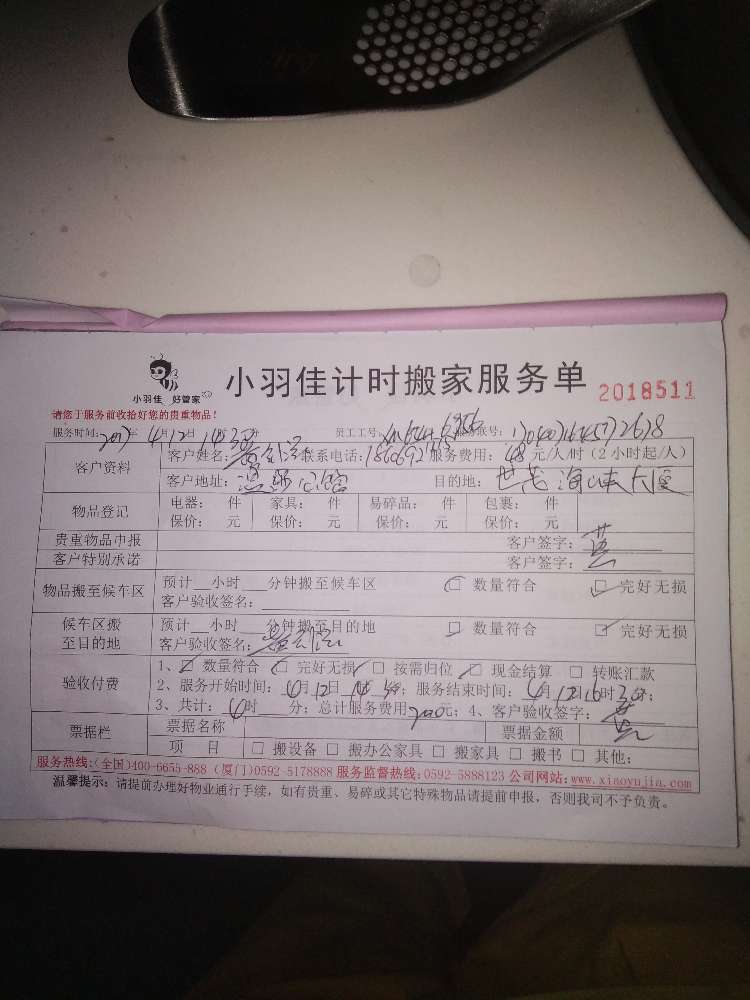 小羽佳 好管家
小羽佳计时搬家服务单 2018511
请您于服务前收拾好您的贵重物品!
服务时间: 2017年 4月12日 14时 分 员工工号:
客户资料 客户姓名: 联系电话: 服务费用: 48 元/人/时(2小时起/人)
客户地址: 目的地: 世茂海峡大厦
物品登记 电器: 件 家具: 件 易碎品: 件 包裹: 件
保价: 元 保价: 元 保价: 元 保价: 元
贵重物品申报 客户签字: 黄
客户特别承诺 客户签字:
物品搬至候车区 预计__小时___分钟搬至候车区 □ 数量符合 □ 完好无损
客户验收签名:
候车区搬至目的地 预计__小时___分钟搬至目的地 □ 数量符合 □ 完好无损
客户验收签名:
验收付费 1、□ 数量符合 □ 完好无损 □ 按需归位 □ 现金结算 □ 转账汇款
2、服务开始时间: 月12日 服务结束时间: 4月12日16时 分;
3、共计: 时 分; 总计服务费用 元; 4、客户验收签字:
票据栏 票据名称 票据金额
项 目 □ 搬设备 □ 搬办公家具 □ 搬家具 □ 搬书 □ 其他:
服务热线:(全国)400-6655-888 (厦门)0592-5178888 服务监督热线:0592-5888123 公司网站:www.xiaoyujia.com
温馨提示: 请提前办理好物业通行手续, 如有贵重、易碎或其它特殊物品请提前申报, 否则我司不予负责。